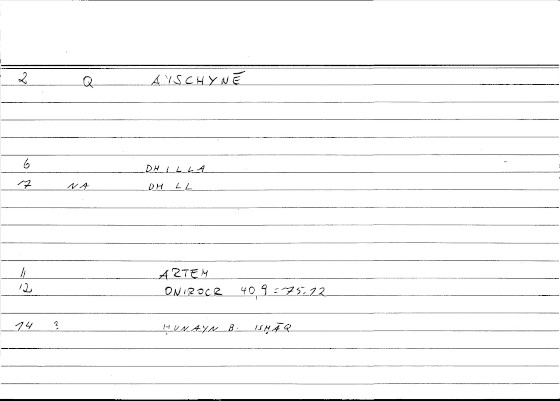 2 Q AISCHYNĒ
6 DHILLA
7 NA DHLL
11 ARTEM
12 ONIROCR 40,9 = 75.12
14 ? ḤUNAYN B. ISḤĀQ